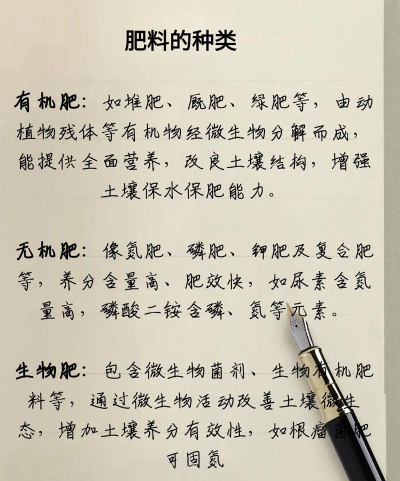 肥料的种类
有机肥：如堆肥、厩肥、绿肥等，由动
植物残体等有机物经微生物分解而成，
能提供全面营养，改良土壤结构，增强
土壤保水保肥能力。
无机肥：像氮肥、磷肥、钾肥及复合肥
等，养分含量高、肥效快，如尿素含氮
量高，磷酸二铵含磷、氮等元素。
生物肥：包含微生物菌剂、生物有机肥
料等，通过微生物活动改善土壤微生
态，增加土壤养分有效性，如根瘤菌肥
可固氮